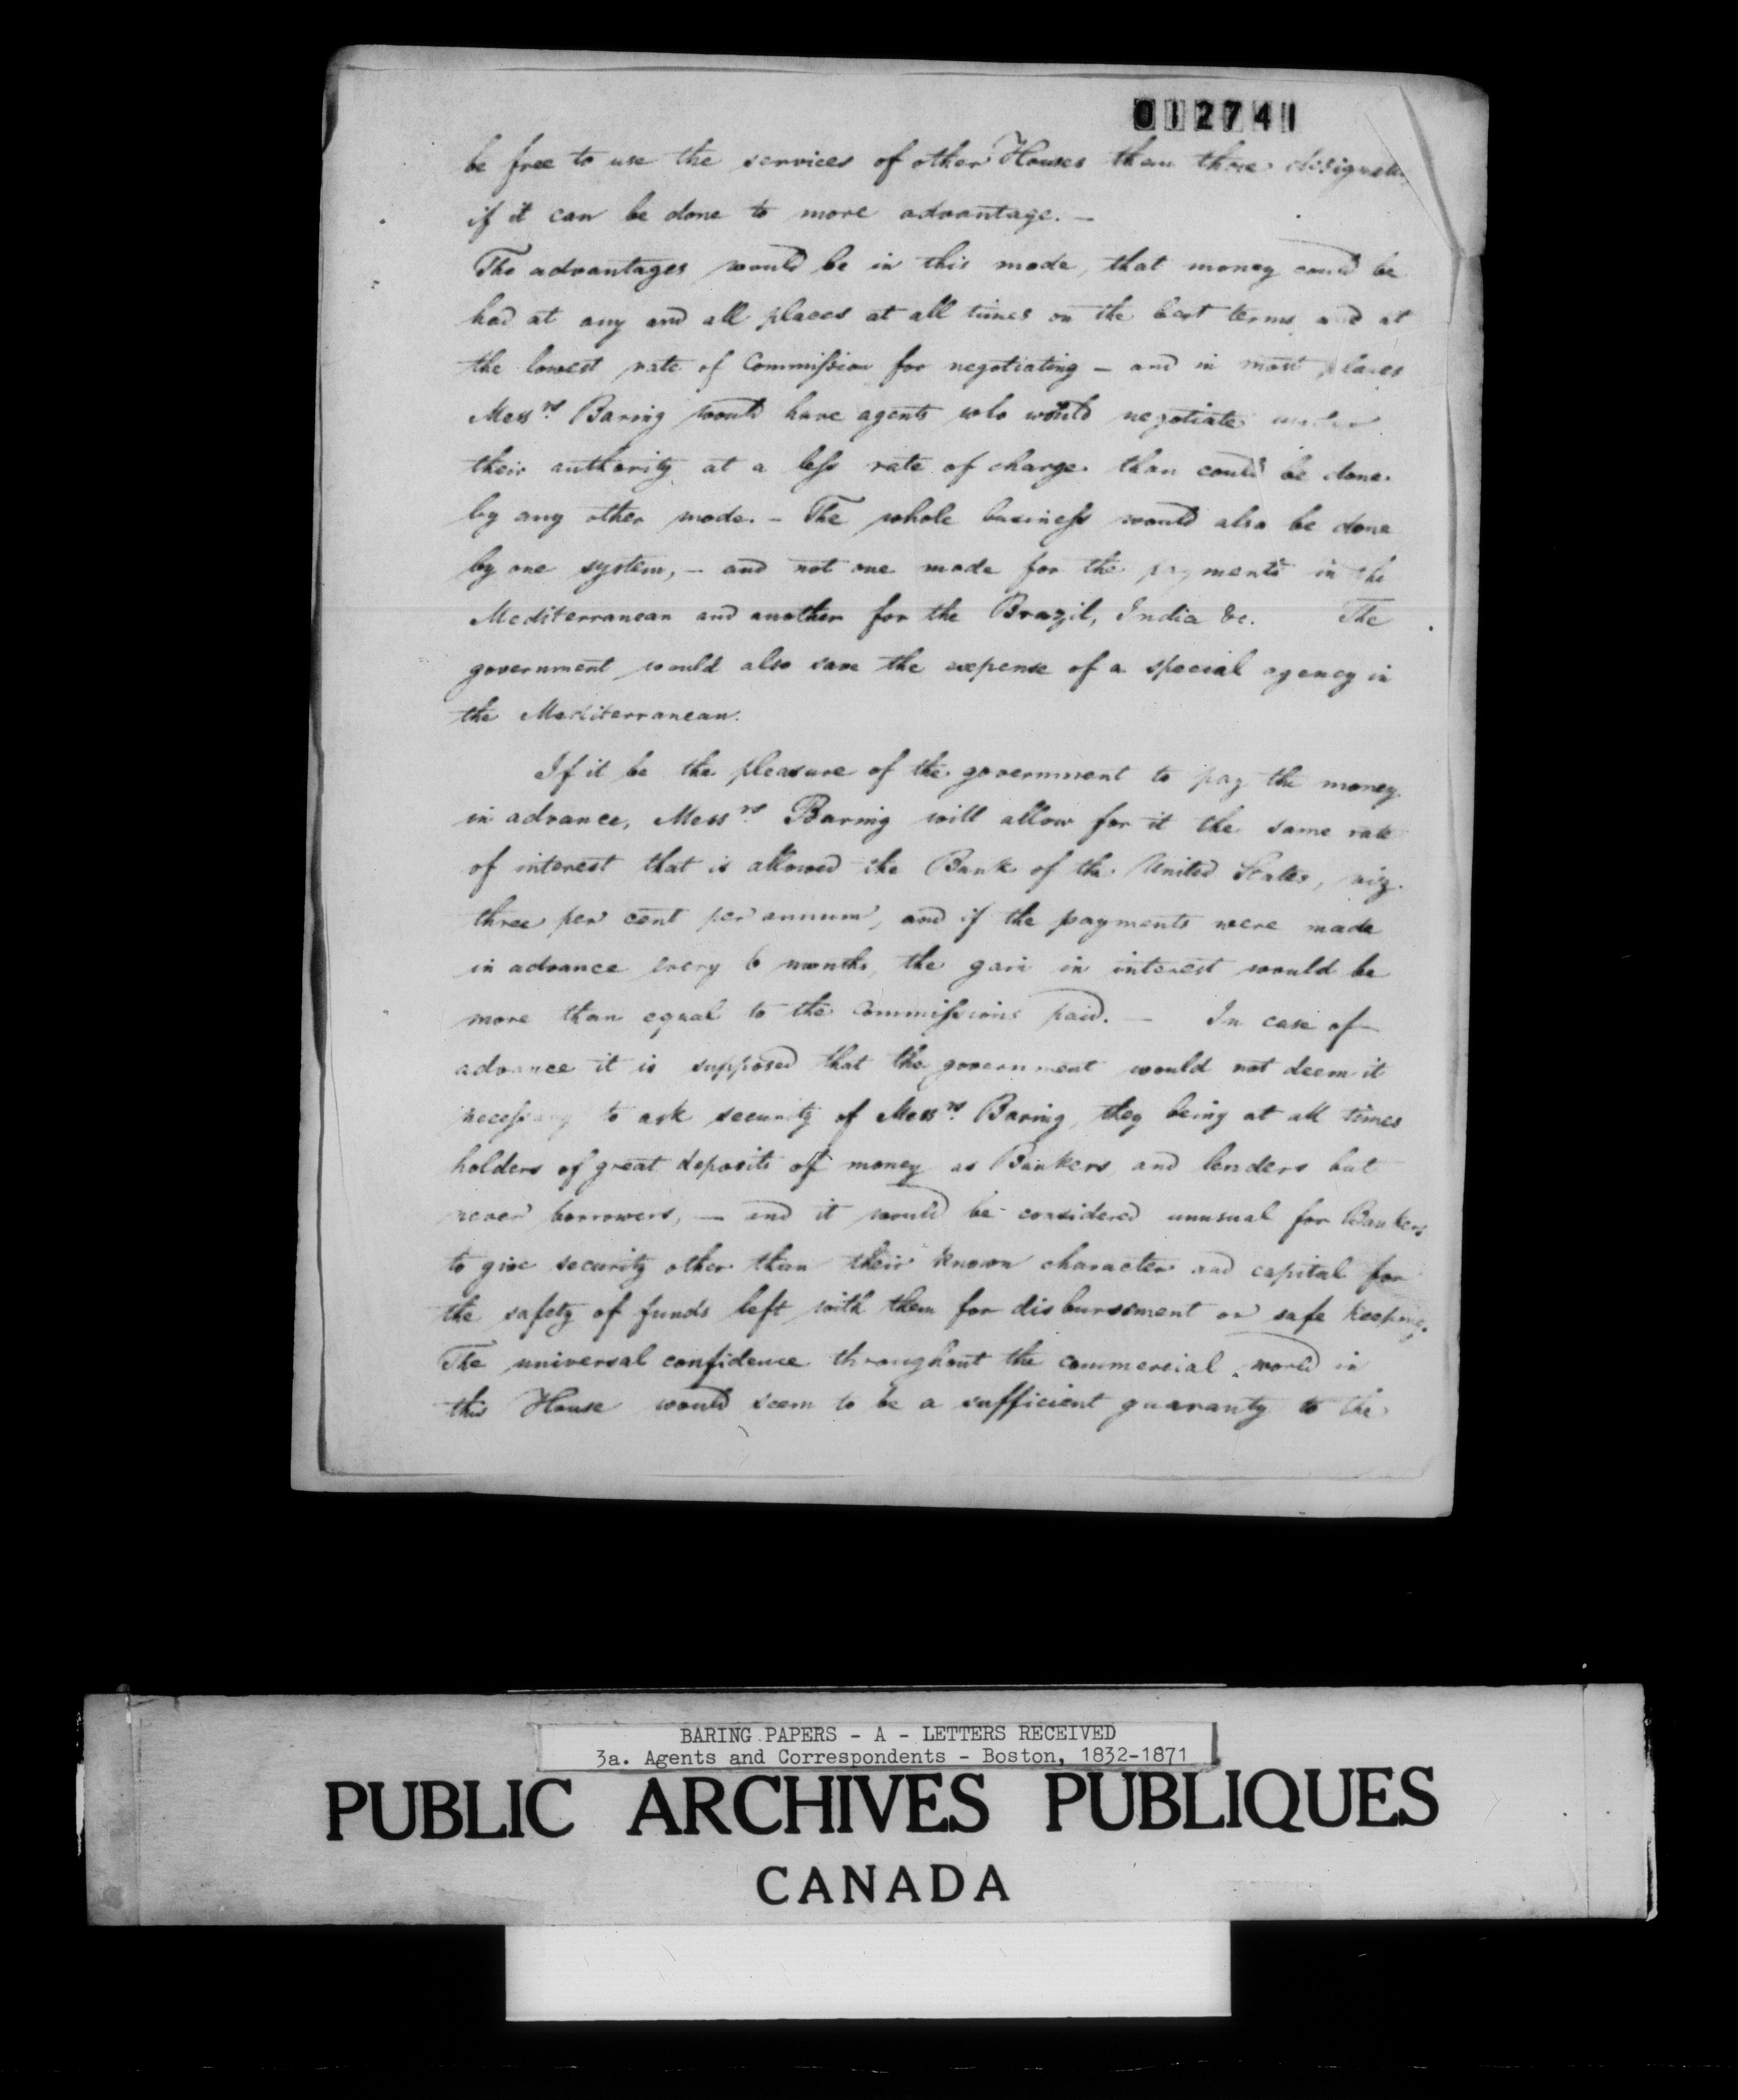 012741
be free to use the services of other Houses than those designated
if it can be done to more advantage. —
The advantages would be in this mode, that money could be
had at any and all places at all times on the best terms and at
the lowest rate of Commission for negotiating — and in most places
Messrs Baring would have agents who would negotiate under
their authority at a less rate of charge than could be done
by any other mode. — The whole business would also be done
by one system, — and not one mode for the payments in the
Mediterranean and another for the Brazil, India &c. The
government would also save the expense of a special agency in
the Mediterranean.
If it be the pleasure of the government to pay the money
in advance, Messrs Baring will allow for it the same rate
of interest that is allowed the Bank of the United States, viz.
three per cent per annum, and if the payments were made
in advance every 6 months, the gain in interest would be
more than equal to the Commissions paid. — In case of
advance it is supposed that the government would not deem it
necessary to ask security of Messrs Baring, they being at all times
holders of great deposits of money as Bankers and lenders but
never borrowers, — and it would be considered unusual for Bankers
to give security other than their known character and capital for
the safety of funds left with them for disbursement or safe keeping.
The universal confidence throughout the commercial world in
this House would seem to be a sufficient guaranty to the
BARING PAPERS - A - LETTERS RECEIVED
3a. Agents and Correspondents - Boston, 1832-1871
PUBLIC ARCHIVES PUBLIQUES
CANADA